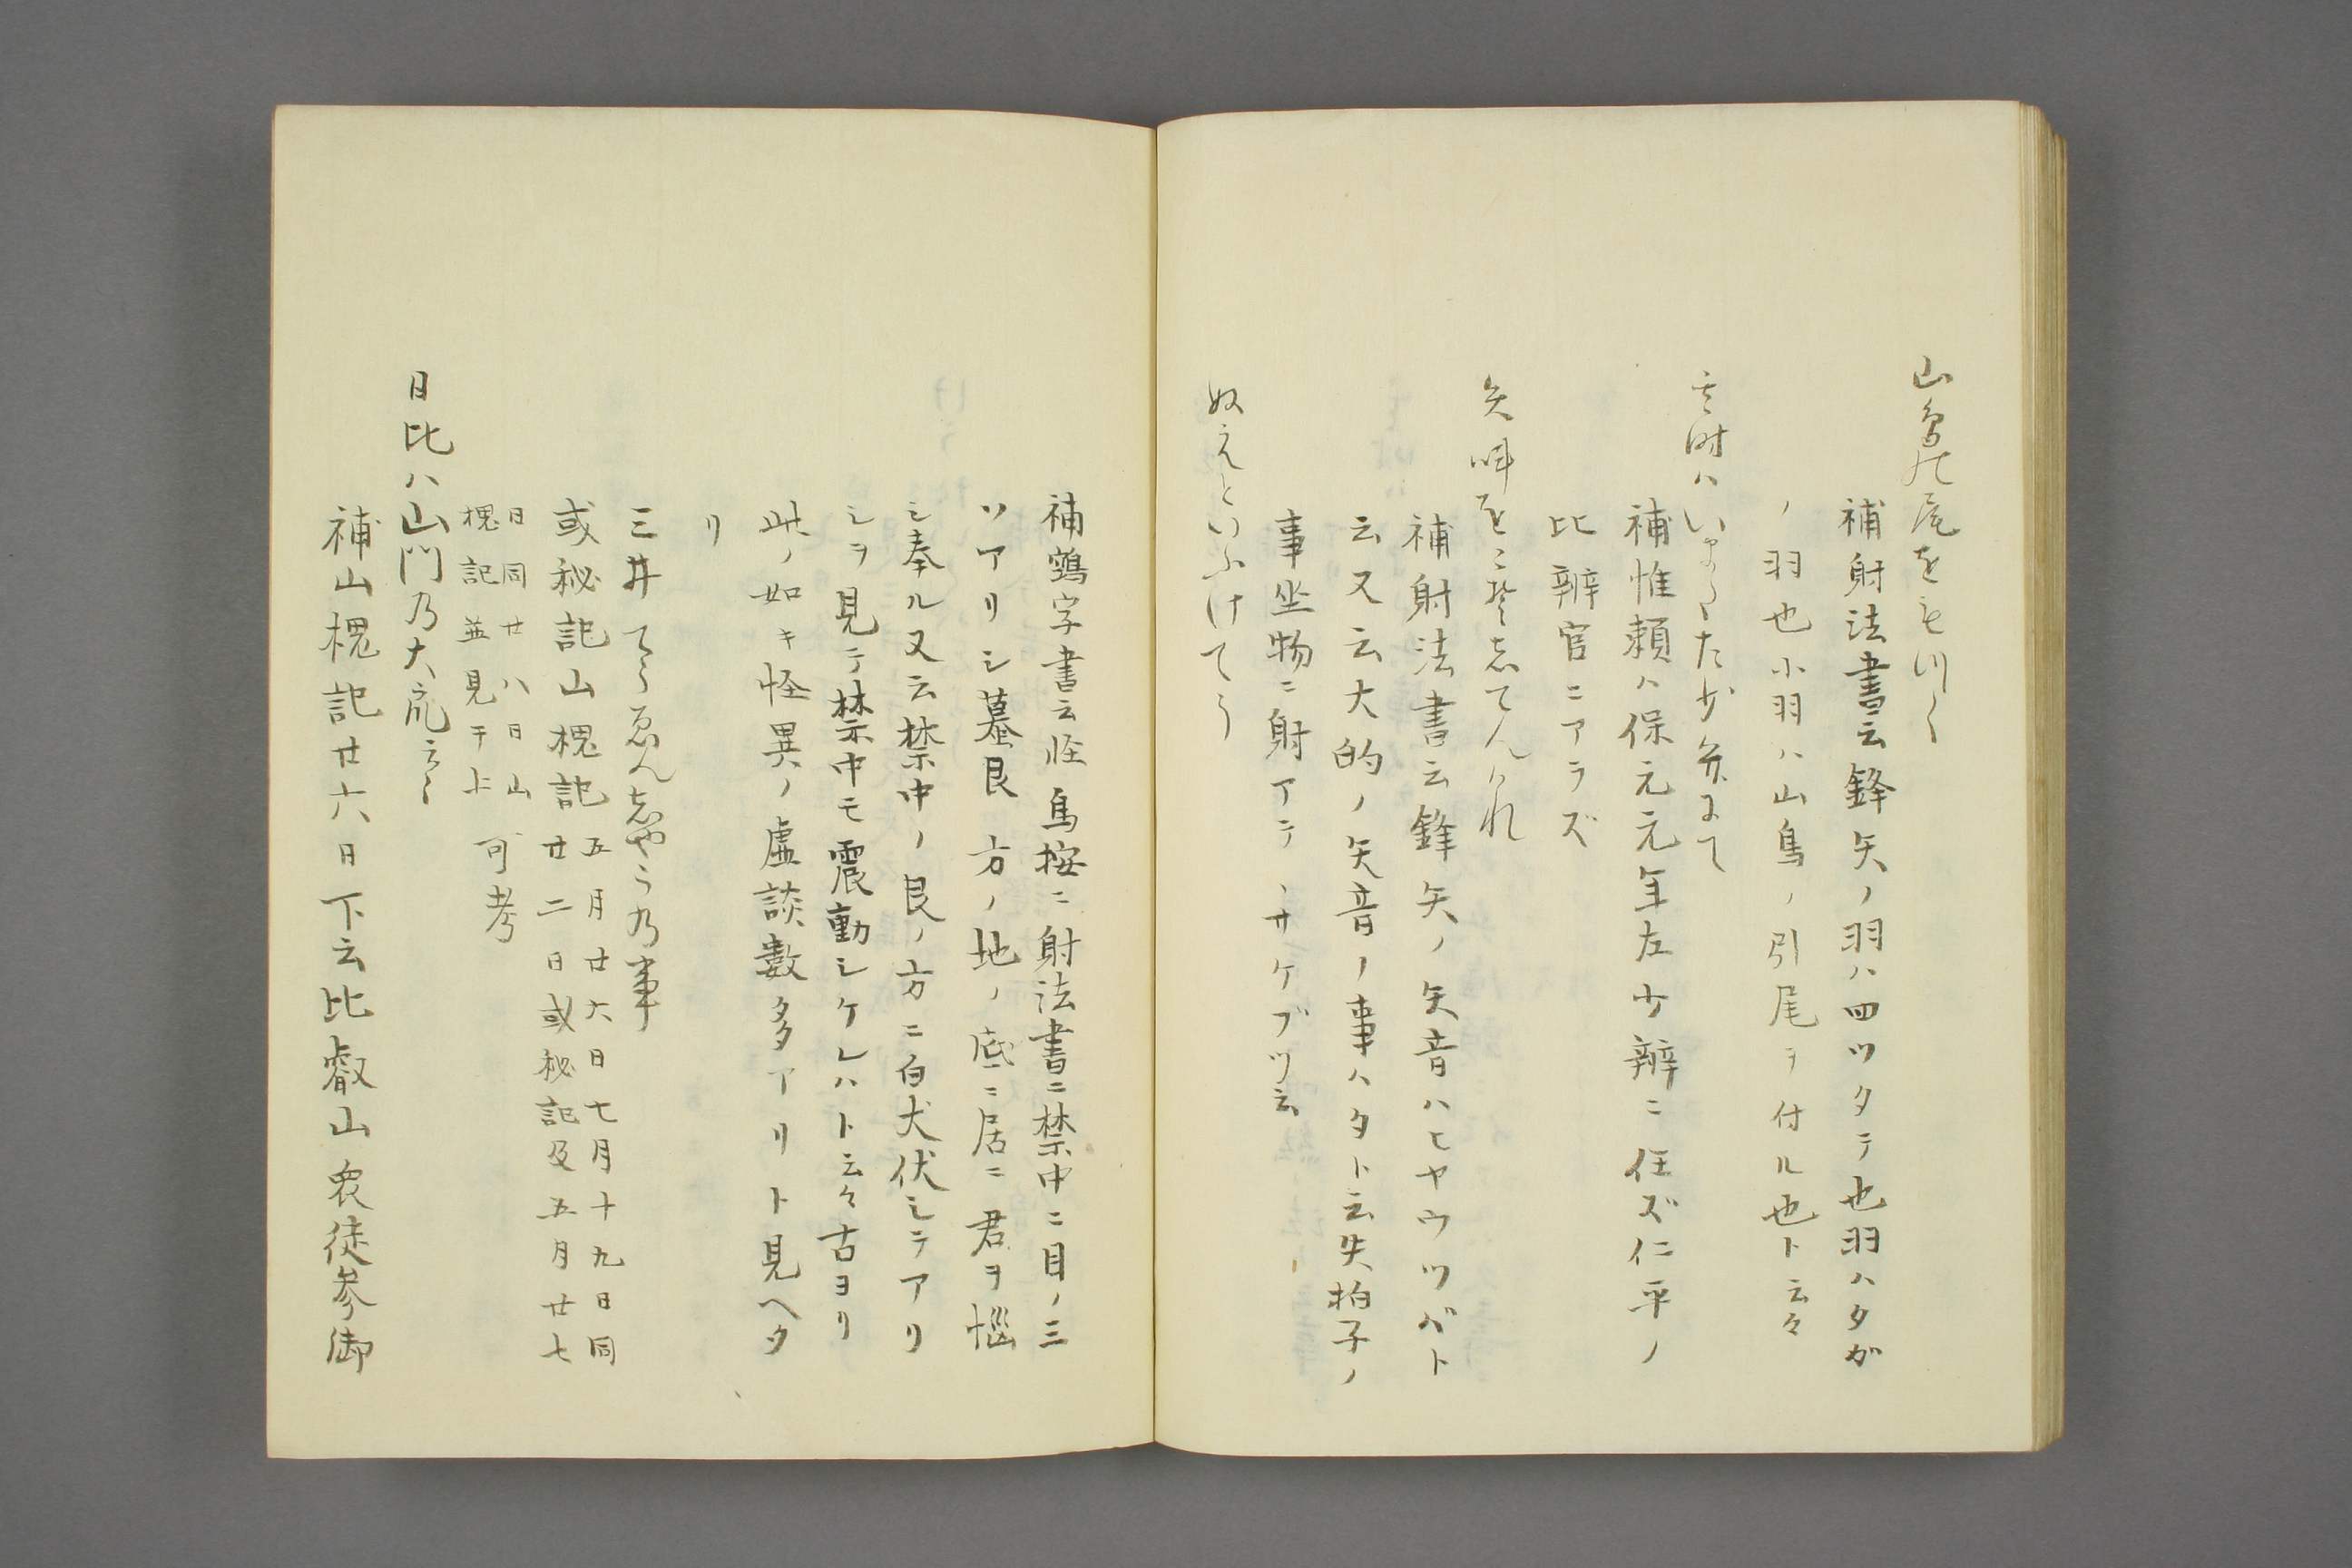 山鳥の尾をもつて
補射法書云鋒矢ノ羽ハ四ツタテ也羽ハタガ
ノ羽也小羽ハ山鳥ノ引尾ヲ付ル也ト云々
其時ハいまた左少弁にて
補惟頼ハ保元元年左少辨ニ任ズ仁平ノ
比辨官ニアラズ
矢叫をこそしてんけれ
補射法書云鋒矢ノ矢音ハヒヤウツバト
云又云大的ノ矢音ノ事ハタト云失拍子ノ
事坐物ニ射アテヽサケブヲ云
ぬえといふけてう
補鵼字書云怪鳥按ニ射法書ニ禁中ニ目ノ三
ツアリシ墓艮方ノ地ノ底ニ居ニ君ヲ惱
シ奉ル又云禁中ノ艮ノ方ニ白犬伏シテアリ
シヲ見テ禁中モ震動シケレハト云々古ヨリ
此ノ如キ怪異ノ虚談數多アリト見ヘタ
リ
三井てらゑんしやうの事
或秘記山槐記五月廿六日七月十九日同
廿二日或秘記及五月廿七
日同廿八日山
槐記並見于上可考
日比ハ山門乃大衆云々
補山槐記廿六日下云比叡山衆徒参御